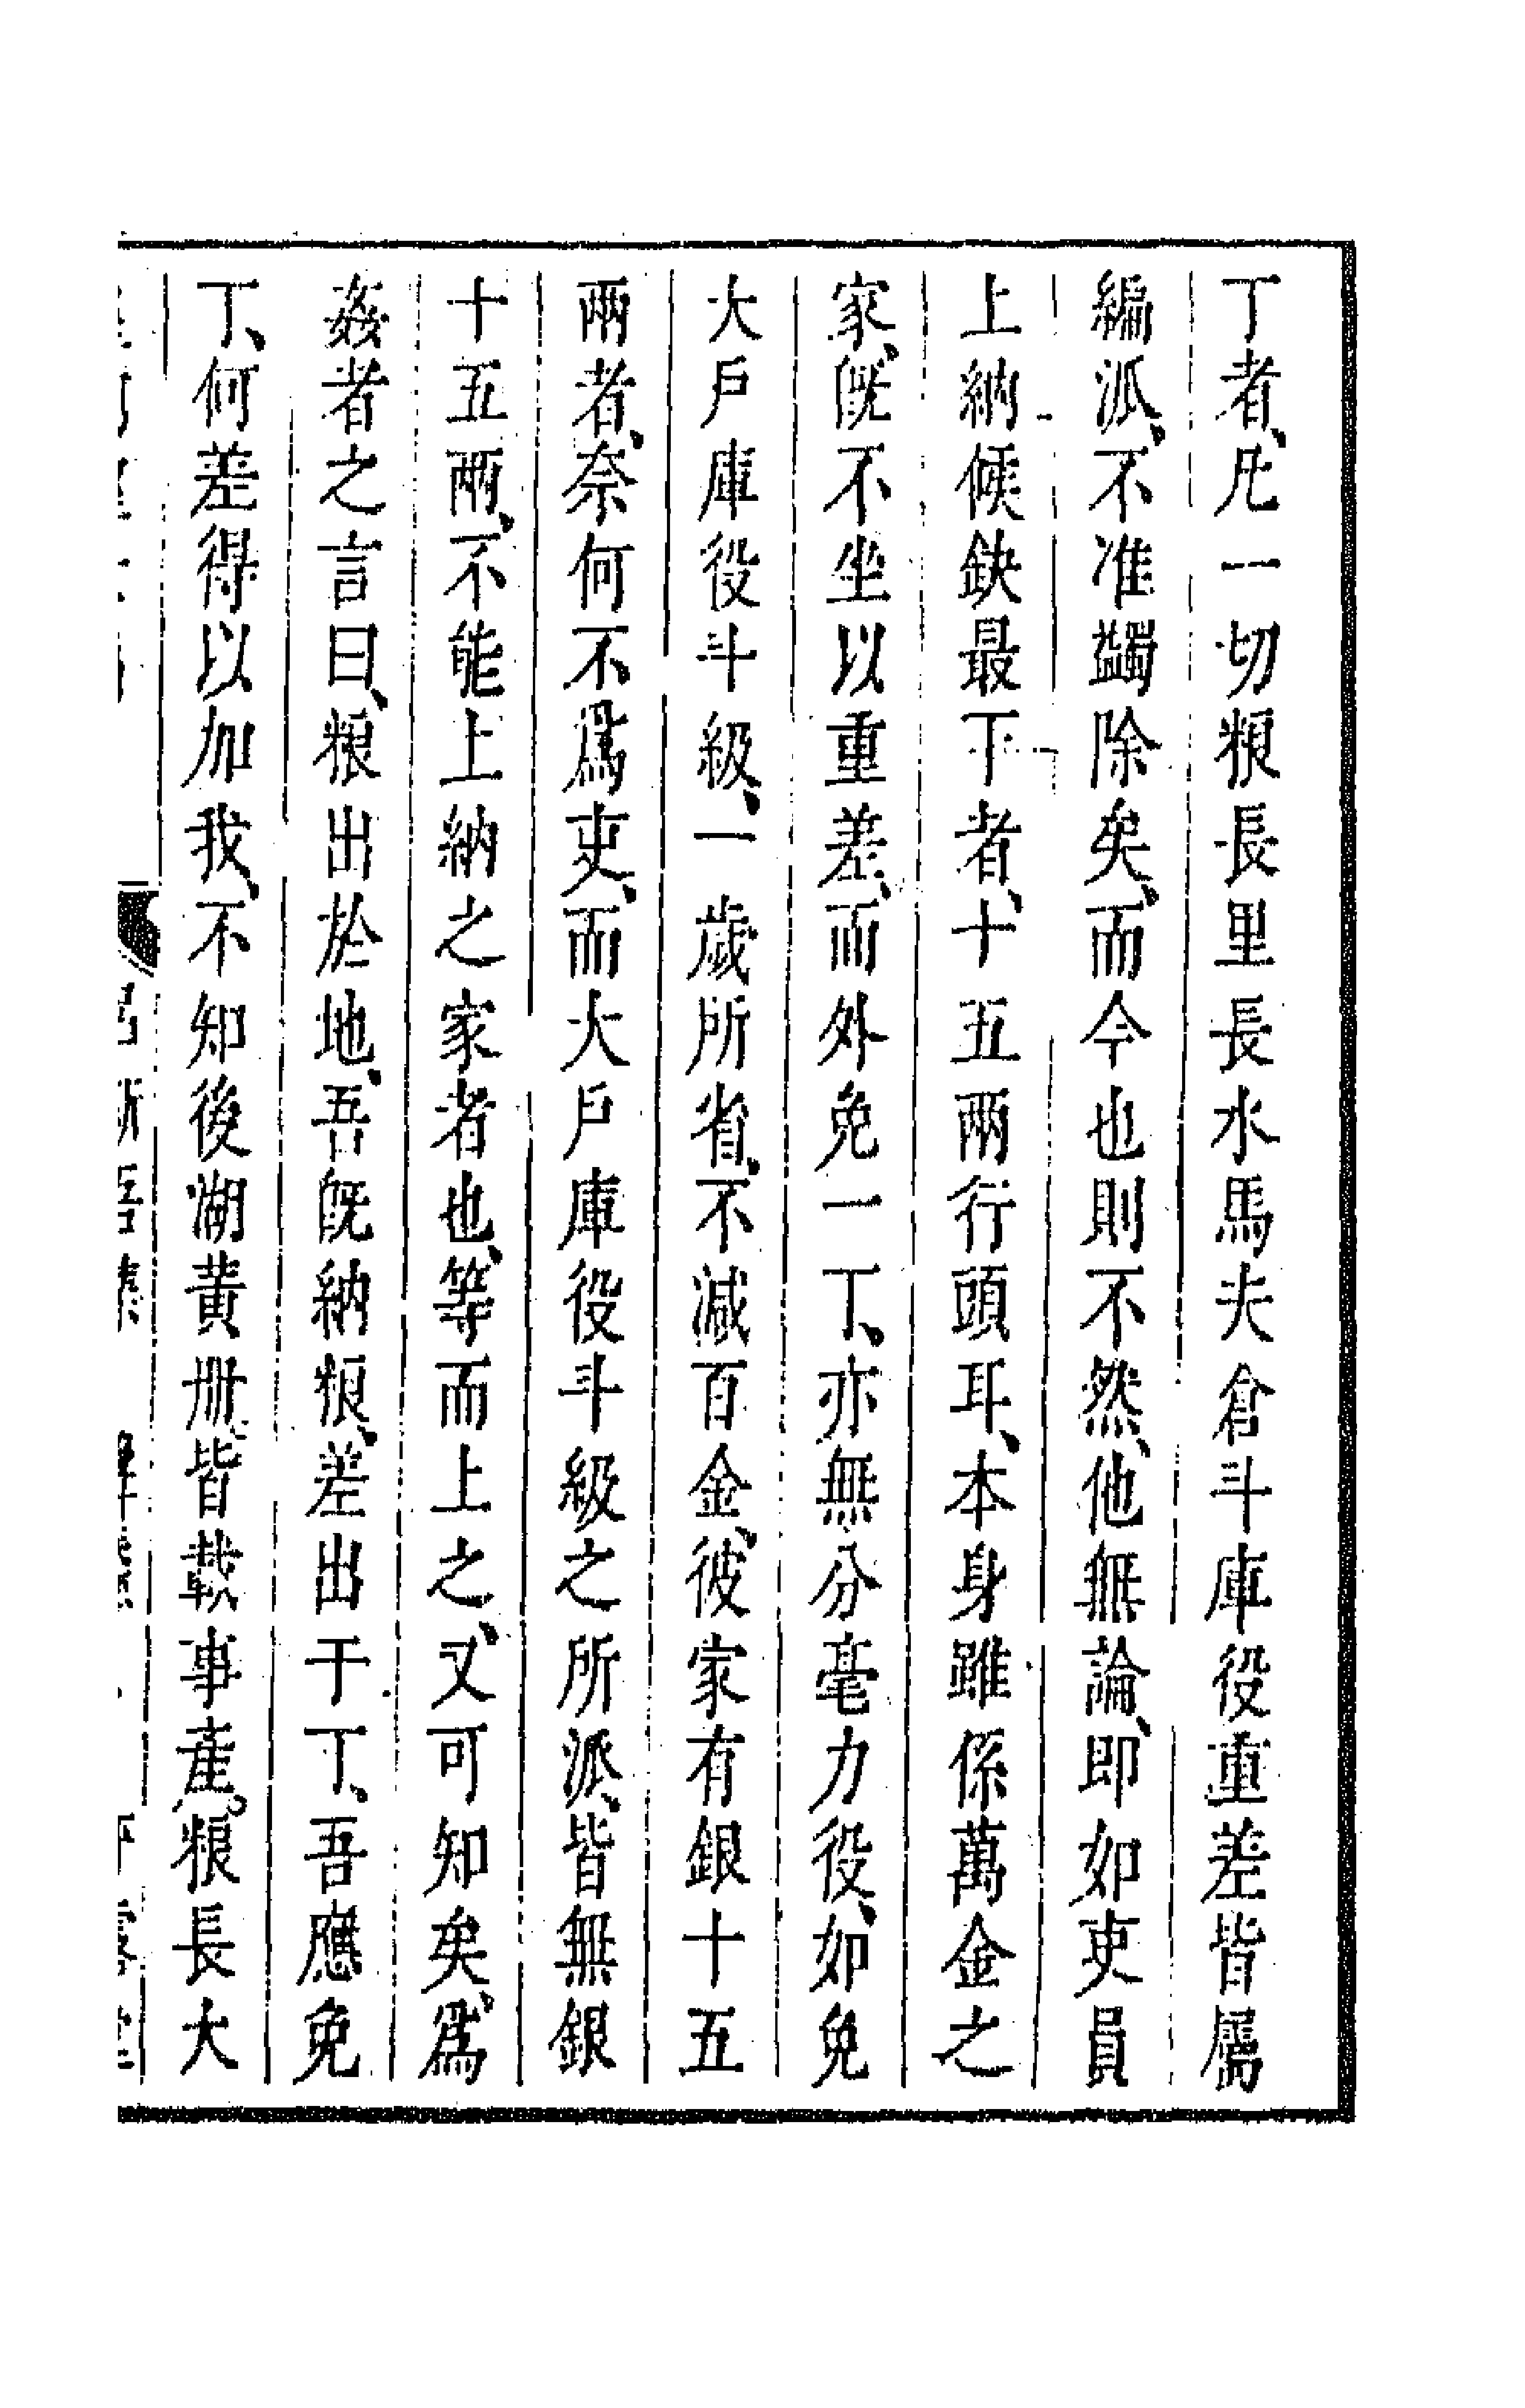 丁者、凡一切粮長里長水馬夫倉斗庫役重差皆屬
編派、不准蠲除矣、而今也則不然、他無論、即如吏員
上納候缺最下者、十五兩行頭耳、本身雖係萬金之
家、旣不坐以重差、而外免一丁、亦無分毫力役、如免
大戶庫役斗級、一歲所省、不減百金、彼家有銀十五
兩者、奈何不爲吏、而大戶庫役斗級之所派、皆無銀
十五兩、不能上納之家者也、等而上之、又可知矣、爲
姦者之言曰、粮出於地、吾旣納粮、差出于丁、吾應免
丁、何差得以加我、不知後湖黃冊、皆載事產。粮長大